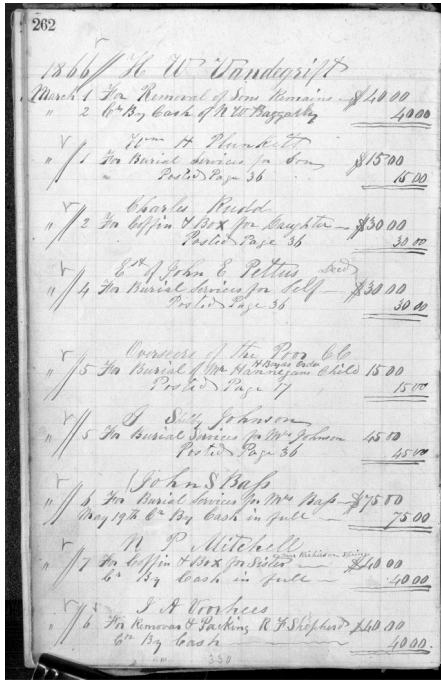 262
1866 H W Vandegrift
March 1 For Removal of Sons Remains $40 00
" 2 Cr By Cash of R W Baggally 40 00
Wm H Plunkett
" 1 For Burial Services for Son $15 00
" Posted Page 36 15 00
Charles Rudd
" 2 For Coffin & Box for Daughter $30 00
Posted Page 36 30 00
Est of John E Pettus Decd
" 4 For Burial Services for Self $30 00
Posted Page 36 30 00
Overseers of the Poor CC
" 5 For Burial of Mr Hannegans Child 15 00
Posted Page 17 15 00
J Johnson
" 5 For Burial Services for Mrs Johnson 45 00
Posted Page 36 45 00
John S Bass
" 6 For Burial Services for Mrs Bass $75 00
May 19th Cr By Cash in full 75 00
N P Mitchell
" 7 For Coffin & Box for Sister $40 00
Cr By Cash in full 40 00
J A Voorhees
" 6 For Removal & Packing R F Shepherd $40 00
Cr By Cash 40 00
330